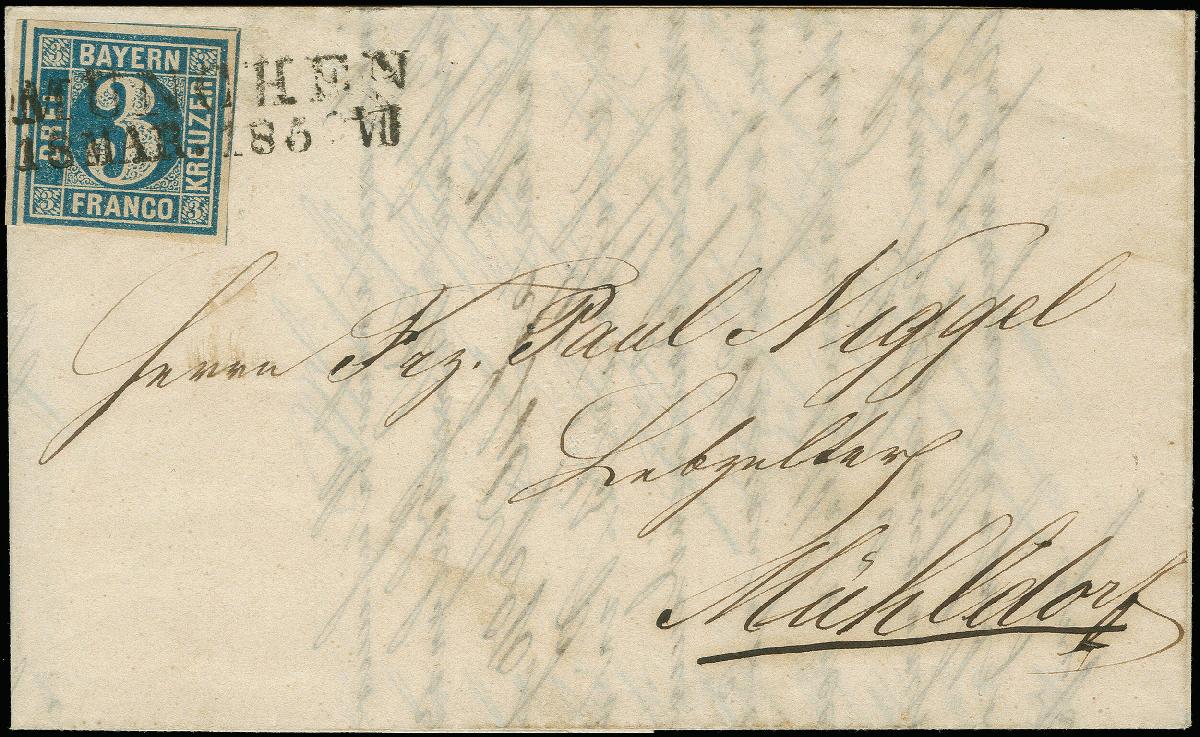 BAYERN
DREI
3
KREUZER
FRANCO
3
3
3
3
MÜNCHEN
MAR. 185 VII
Herrn Frz. Paul Niggel
Lebzelter
Mühldorf